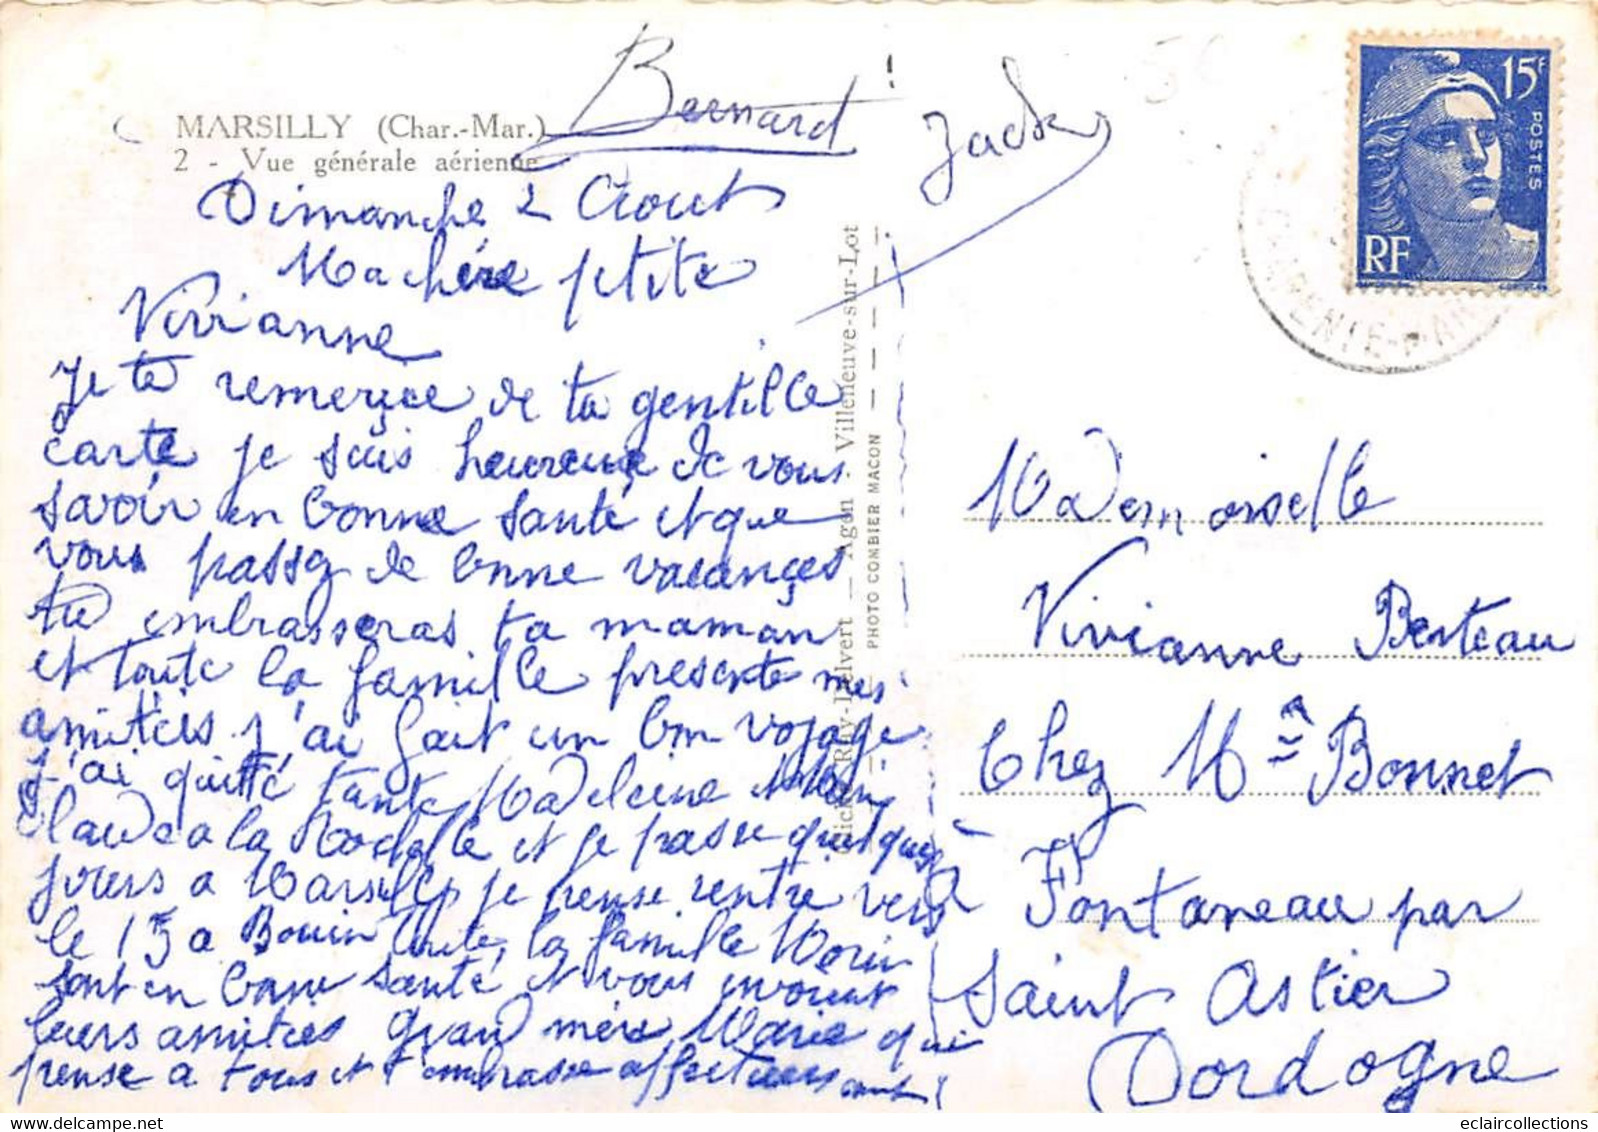 MARSILLY (Char.-Mar.)
2 - Vue générale aérienne
Bernard !
Jack
Dimanche 2 Aout
Ma chère ptite
Vivianne
Je te remerçie de ta gentille
carte je suis heureuse de vous
savoir en bonne santé et que
vous passez de bonne vacançes
tu embrasseras ta maman
et toute la famille presente mes
amitiées j'ai fait un bon voyage
j'ai quitté tante Madeleine et
Claude a la Rochelle et je passe quelques
jours a Marsilly je pense rentre vers
le 15 a Bouin toute la famille Morin
sont en bonne santé et vous envoient
leurs amitiés grand mère Marie qui
pense a tous et t'embrasse affectueusement
Villeneuve-sur-Lot
PHOTO COMBIER MACON
15F
POSTES
RF
CHARENTE-MAR
Mademoiselle
Vivianne Berteau
Chez Mme Bonnet
à Fontaneau par
Saint Astier
Dordogne
eclaircollections